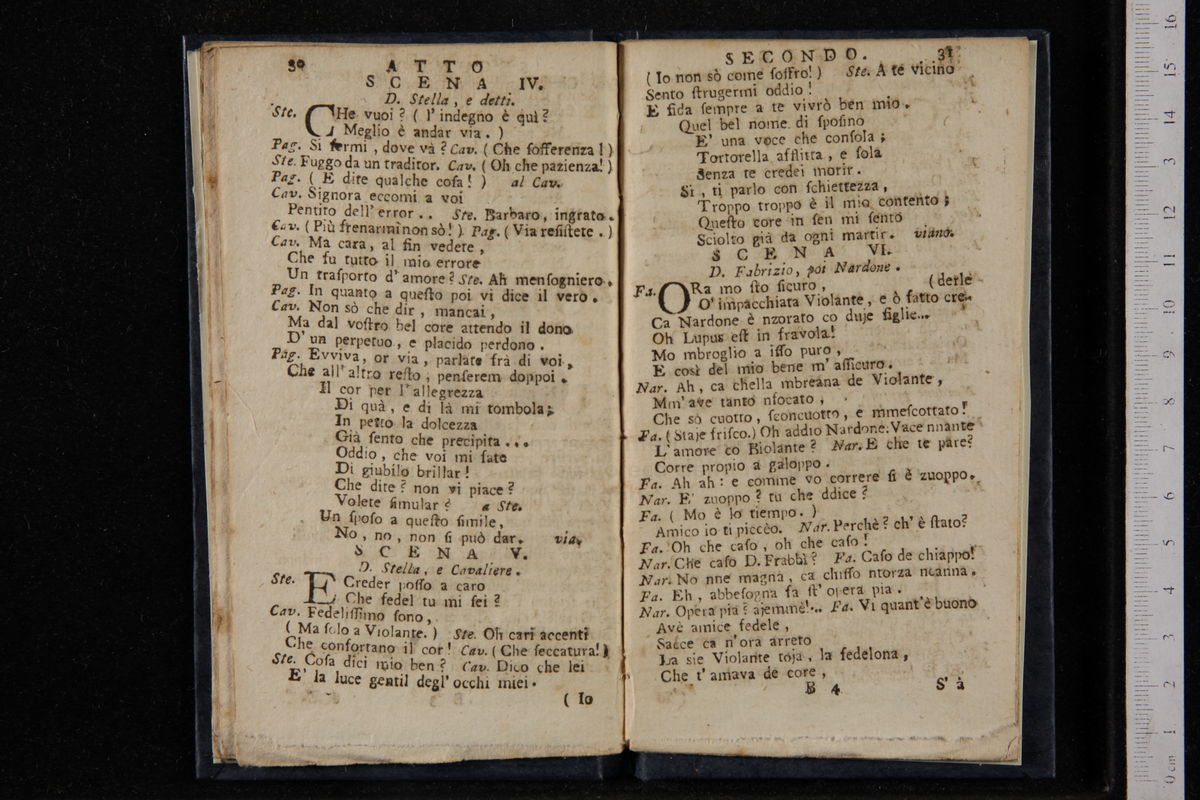 30 ATTO
SCENA IV.
D. Stella, e detti.
Ste. CHe vuoi? ( l'indegno è quì?
Meglio è andar via. )
Pag. Si fermi, dove và? Cav. ( Che ſofferenza! )
Ste. Fuggo da un traditor. Cav. ( Oh che pazienza! )
Pag. ( E dite qualche coſa! ) al Cav.
Cav. Signora eccomi a voi
Pentito dell'error.. Ste. Barbaro, ingrato.
Cav. ( Più frenarmi non sò! ) Pag. ( Via reſiſtete. )
Cav. Ma cara, al fin vedere,
Che fu tutto il mio errore
Un traſporto d'amore? Ste. Ah menſogniero.
Pag. In quanto a queſto poi vi dice il vero.
Cav. Non sò che dir, mancai,
Ma dal voſtro bel core attendo il dono
D'un perpetuo, e placido perdono.
Pag. Evviva, or via, parlate frà di voi,
Che all'altro reſto, penſerem doppoi.
Il cor per l'allegrezza
Di quà, e di là mi tombola;
In petto la dolcezza
Già ſento che precipita...
Oddio, che voi mi fate
Di giubilo brillar!
Che dite? non vi piace?
Volete ſimular? a Ste.
Un ſpoſo a queſto ſimile,
No, no, non ſi può dar. via.
SCENA V.
D. Stella, e Cavaliere.
Ste. E Creder poſſo a caro
Che fedel tu mi ſei?
Cav. Fedeliſſimo ſono,
( Ma ſolo a Violante. ) Ste. Oh cari accenti
Che confortano il cor! Cav. ( Che ſeccatura! )
Ste. Coſa dici mio ben? Cav. Dico che lei
E' la luce gentil degl'occhi miei.
( Io
SECONDO. 31
( Io non sò come ſoffro! ) Ste. A te vicino
Sento ſtrugermi oddio!
E fida ſempre a te vivrò ben mio.
Quel bel nome di ſpoſino
E' una voce che conſola;
Tortorella afflitta, e ſola
Senza te credei morir.
Si, ti parlo con ſchiettezza,
Troppo troppo è il mio contento;
Queſto core in ſen mi ſento
Sciolto già da ogni martir. viano.
SCENA VI.
D. Fabrizio, poi Nardone.
Fa. ORa mo ſto ſicuro, (derle
O' impacchiata Violante, e ò fatto cre-
Ca Nardone è nzorato co duje figlie...
Oh Lupus eſt in fravola!
Mo mbroglio a iſſo puro,
E così del mio bene m'aſſicuro.
Nar. Ah, ca chella mbreana de Violante,
Mm'ave tanto nfocato,
Che sò cuotto, ſconcuotto, e mmeſcottato!
Fa. ( Staje friſco. ) Oh addio Nardone. Vace nnante
L'amore co Biolante? Nar. E che te pare?
Corre propio a galoppo.
Fa. Ah ah: e comme vo correre ſi è zuoppo.
Nar. E' zuoppo? tu che ddice?
Fa. ( Mo è lo tiempo. )
Amico io ti piccèo. Nar. Perchè? ch'è ſtato?
Fa. Oh che caſo, oh che caſo!
Nar. Che caſo D. Frabbì? Fa. Caſo de chiappo!
Nar. No nne magna, ca chiſſo ntorza ncanna.
Fa. Eh, abbeſogna fa ſt'opera pia.
Nar. Opera pia? ajemmè!... Fa. Vi quant'è buono
Avè amice fedele,
Sacce ca n'ora arreto
La sie Violante toja, la fedelona,
Che t'amava de core,
B 4 S'à